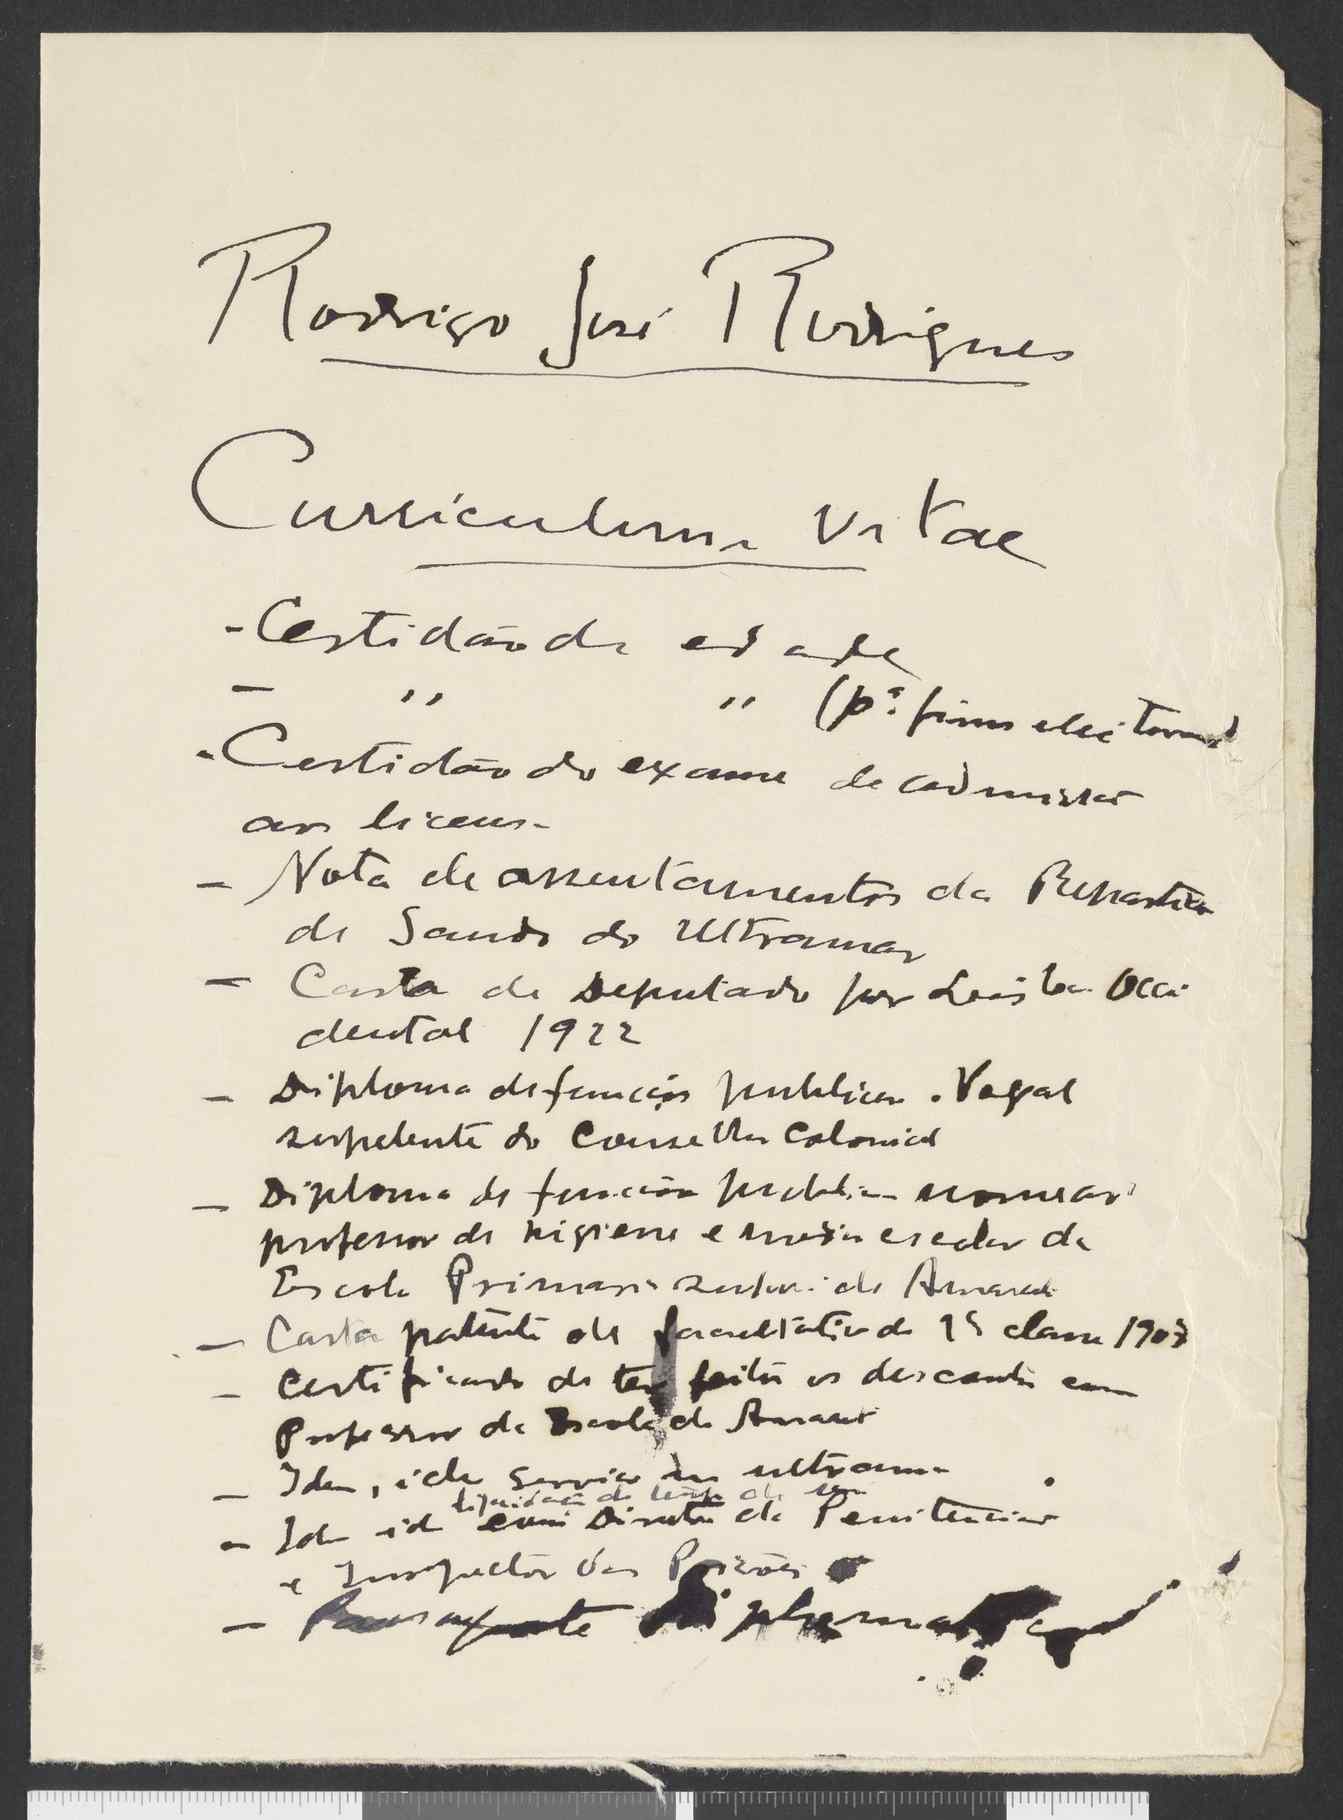 Rodrigo José Rodrigues
Curriculum Vitae
- Certidão de edade
- " " (pª. fins eleitoraes
- Certidão do exame de admissão
aos liceus -
- Nota de assentamentos da Repartição
de Saude do Ultramar
- Carta de Deputado por Lisboa Occi
dental 1922
- Diploma de função publica. Vogal
suplente do Conselho Colonial
- Diploma de função publica
professor de higiene e escolar da
Escola Primaria Super. de Amarante
- Carta patente de facultativo de 1ª classe 1903
- Certificado de ter feito os descontos como
Professor da Escola de Amarante
- Idem, idem Serviço no ultramar
liquidação de tempo de
- Idem id como Director da Penitenciaria
e Inspector das Prisões
- Passaporte Diplomatico